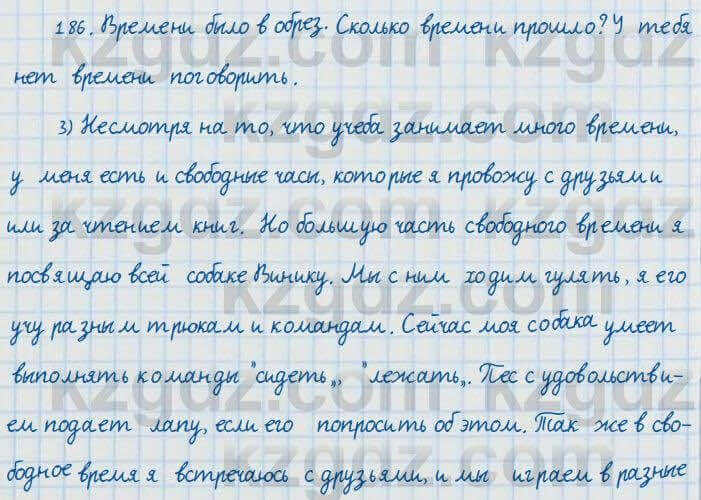 186. Времени было в обрез. Сколько времени прошло? У тебя
нет времени поговорить.
3) Несмотря на то, что учеба занимает много времени,
у меня есть и свободные часы, которые я провожу с друзьями
или за чтением книг. Но большую часть свободного времени я
посвящаю всей собаке Винику. Мы с ним ходим гулять, я его
учу разным трюкам и командам. Сейчас моя собака умеет
выполнять команды "сидеть„, "лежать„. Пес с удовольстви-
ем подает лапу, если его попросить об этом. Так же в сво-
бодное время я встречаюсь с друзьями, и мы играем в разные
kzgdz.com kzgdz.com
kzgdz.com kzgdz.com
kzgdz.com kzgdz.com
kzgdz.com kzgdz.com
kzgdz.com kzgdz.com